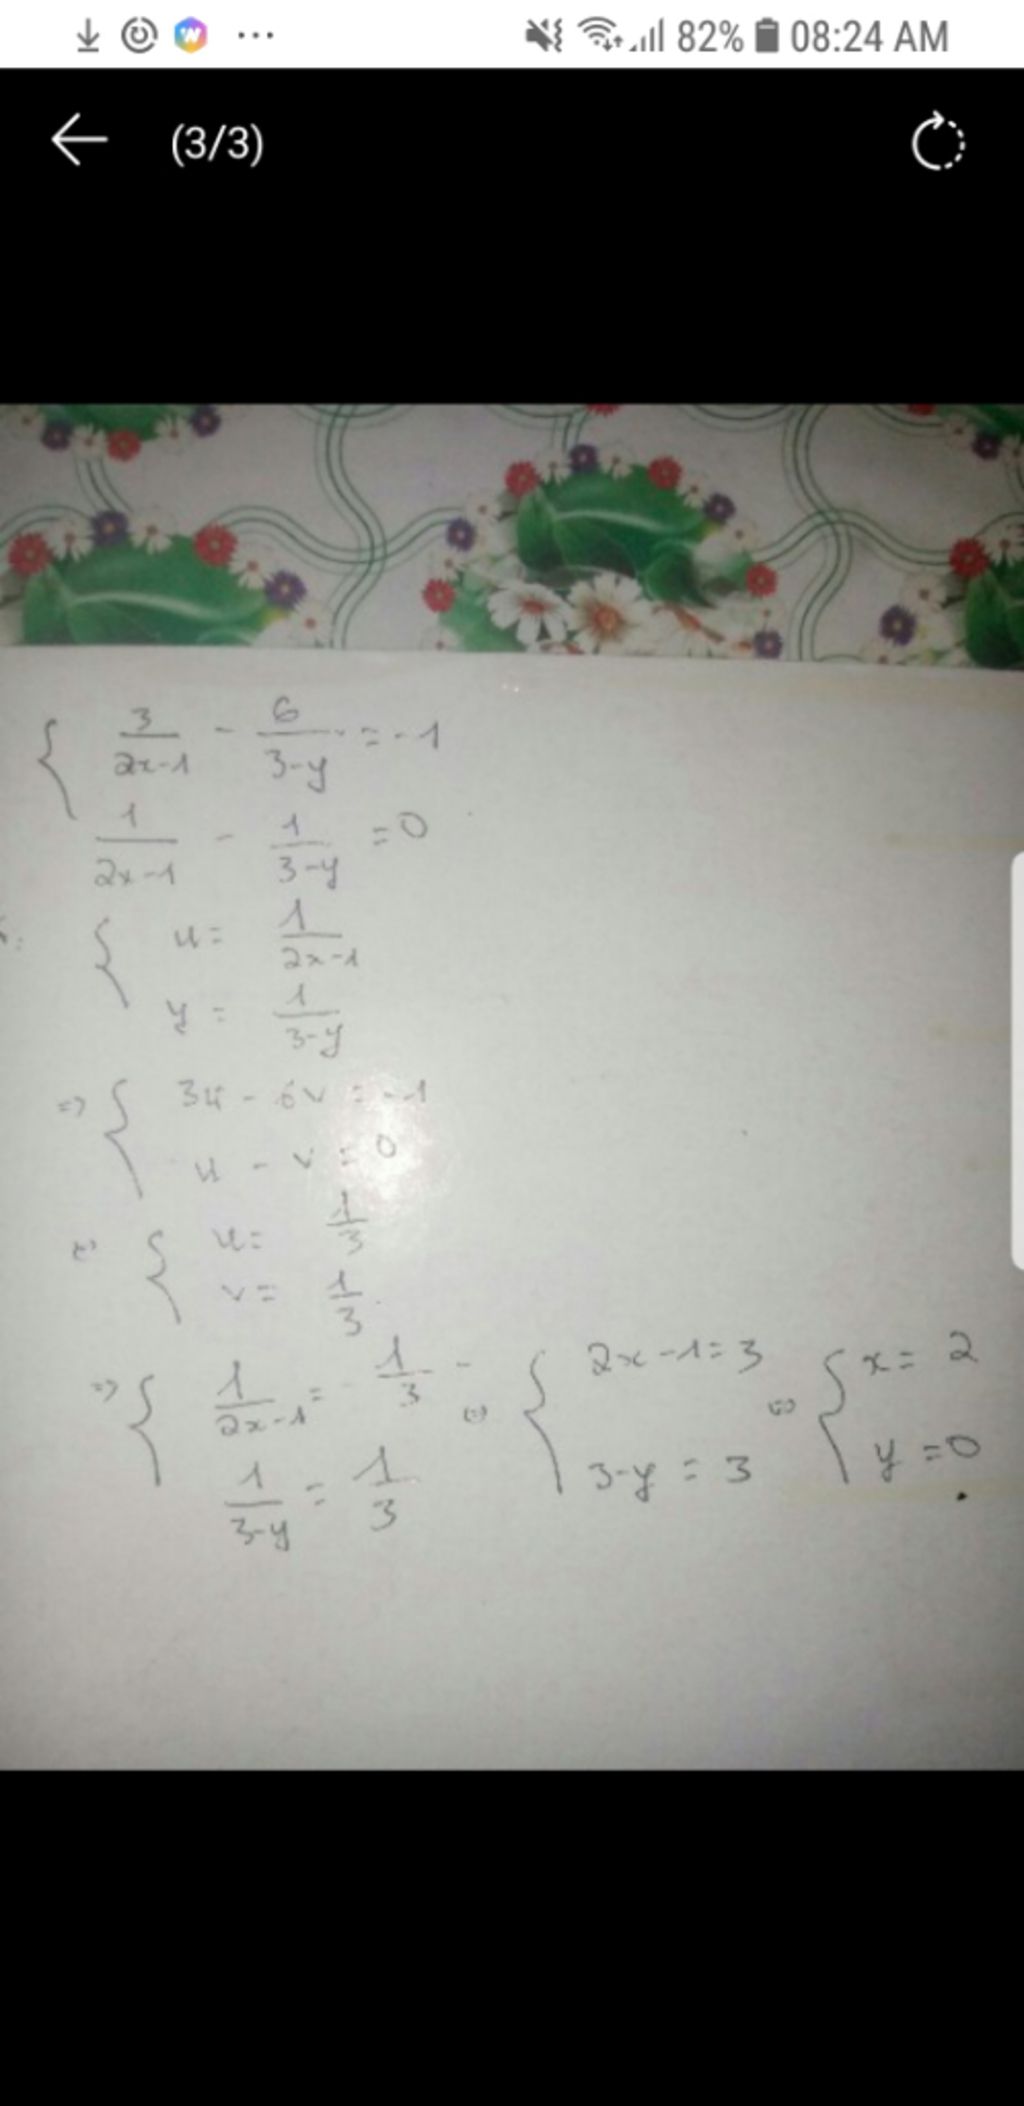 82% 08:24 AM
(3/3)
{ 3/(2x-1) - 6/(3-y) = -1
1/(2x-1) - 1/(3-y) = 0
{ u = 1/(2x-1)
y = 1/(3-y)
=> { 3u - 6v = -1
u - v = 0
<=> { u = 1/3
v = 1/3
=> { 1/(2x-1) = 1/3 <=> { 2x-1=3 <=> { x = 2
1/(3-y) = 1/3 3-y = 3 y = 0